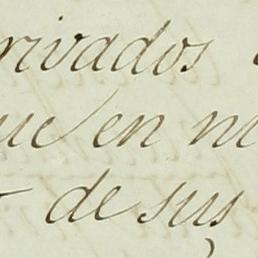 rivados
ue en ni
de sus